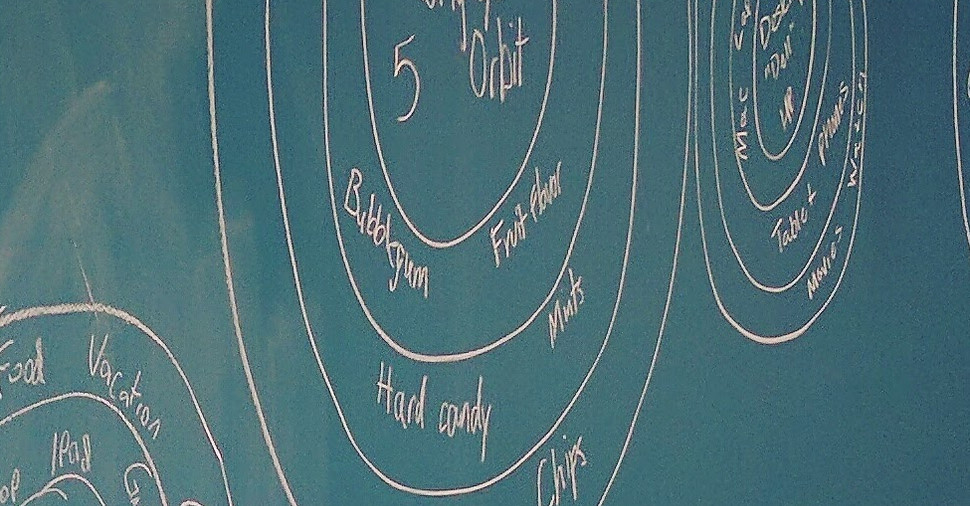 5
Orbit
Bubblegum
Fruit flavor
Mints
Hard candy
Chips
Mac
"Dell"
HP
phones
Watch
Tablet
Movies
Food
Vacation
IPad